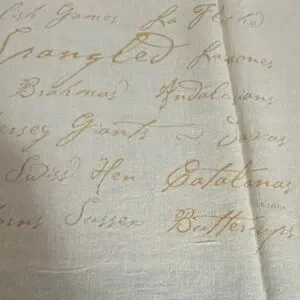 lish Games La Flèche
Spangled Faxones
Brahmas Andalusians
ersey Giants ~
Swiss Hen Catalanas
orns Sussex Buttercups